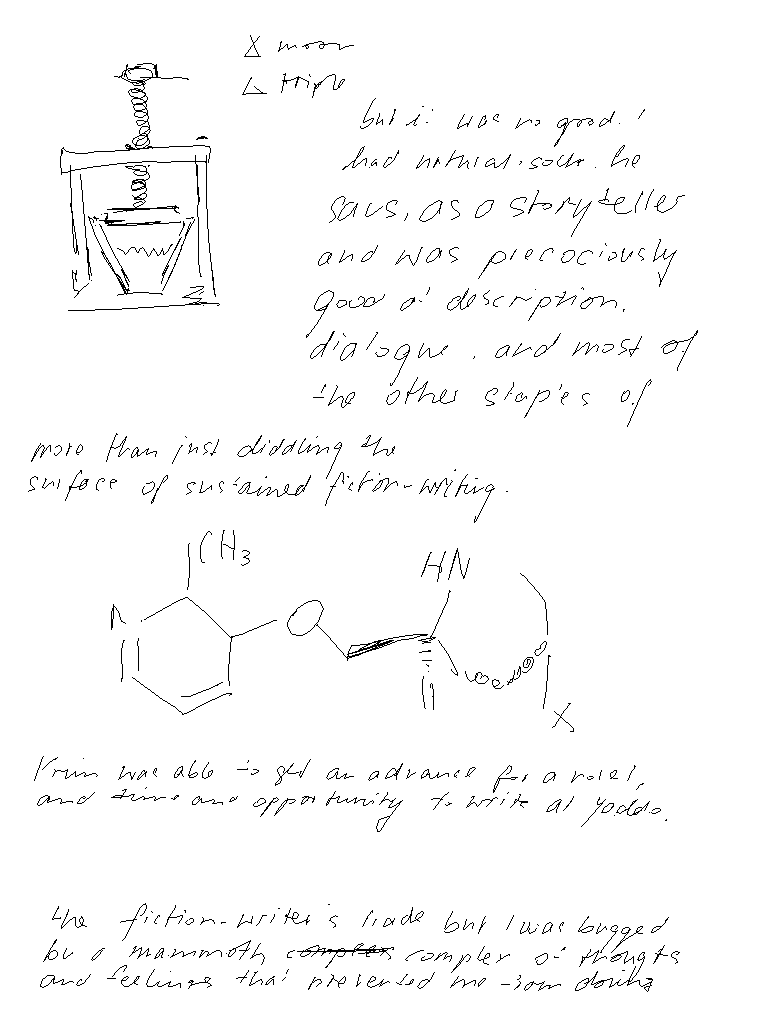 moon
triple
but it was no good. I
had natural, he
says, as a storyteller
and was precociously
good at description,
dialogue, and most of
the other staples of
more than just diddling the
surface of sustained fiction-writing.
CH3
HN
N
O
X
Krim was able to get an advance for a novel,
and time and opportunity to write at Yaddo.
the fiction-writer's trade but I was bugged
by a mammoth complex of thougts
and feelings that prevented me from doing